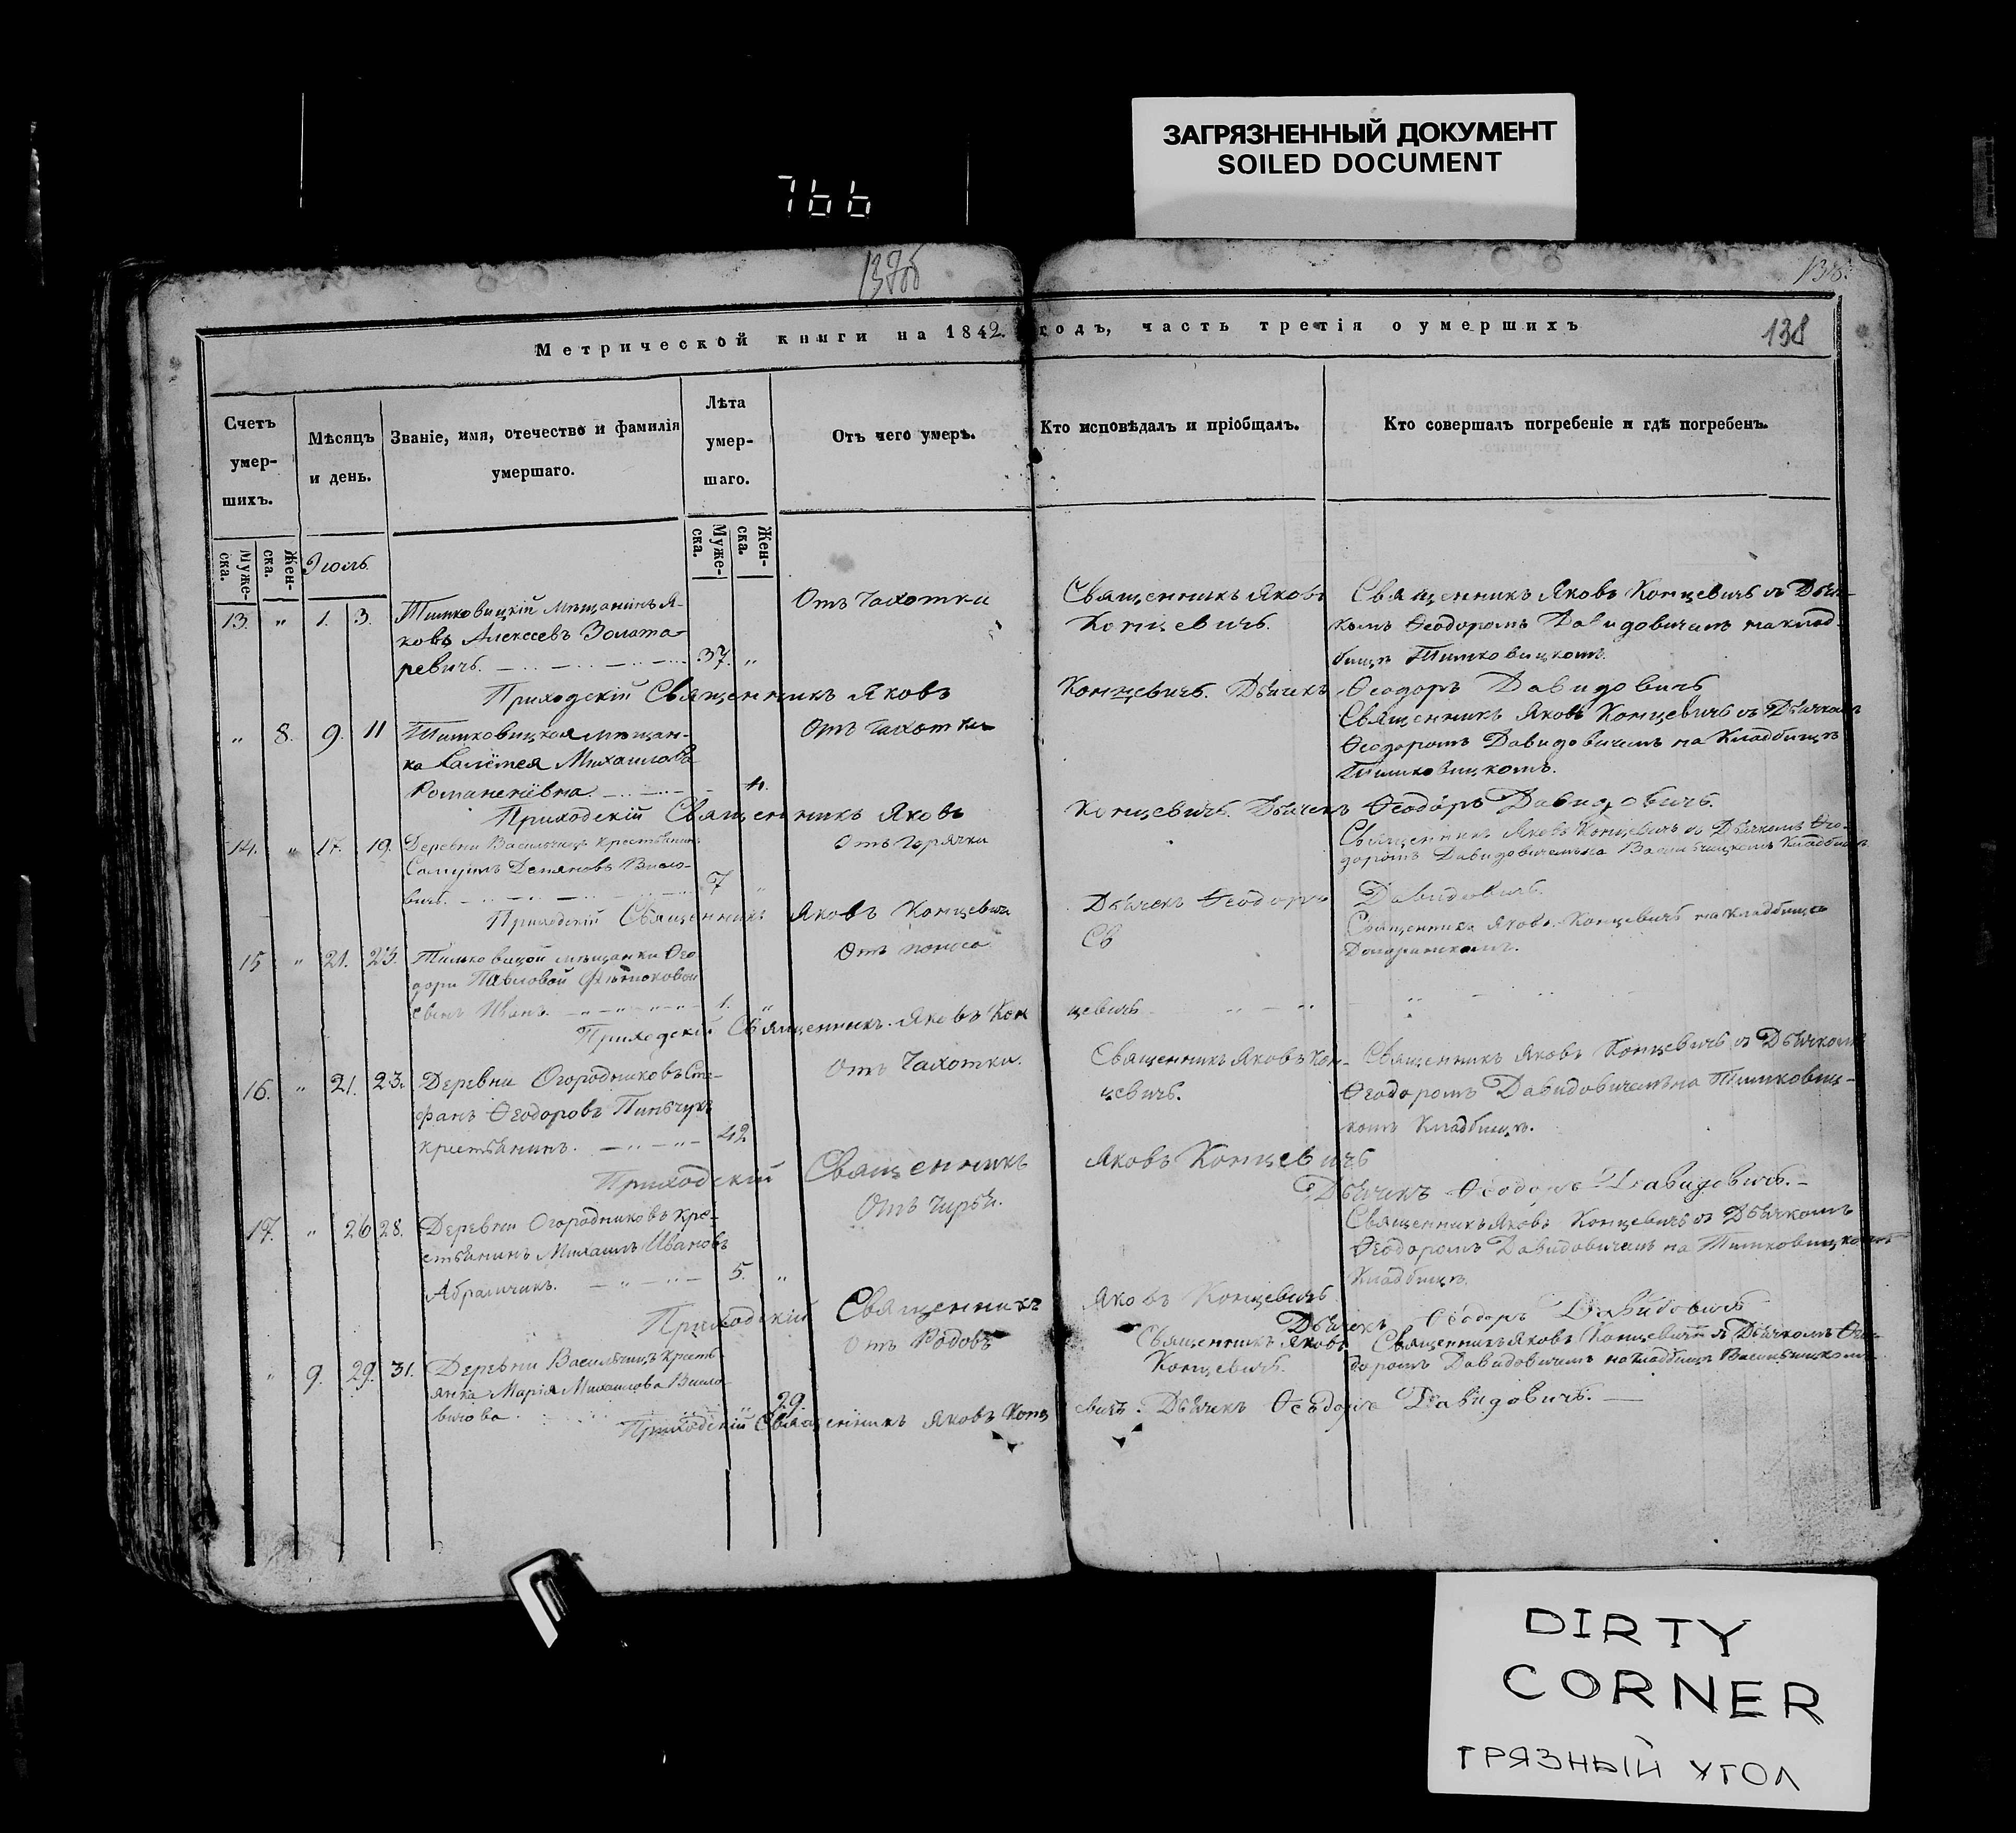 ЗАГРЯЗНЕННЫЙ ДОКУМЕНТ
SOILED DOCUMENT
766
138
Метрической книги на 1842 годъ, часть третія о умершихъ
Счетъ умер-шихъ.
Мѣсяцъ и день.
Званіе, имя, отечество и фамилія умершаго.
Лѣта умер-шаго.
Отъ чего умеръ.
Кто исповѣдалъ и пріобщалъ.
Кто совершалъ погребеніе и гдѣ погребенъ.
Муже-ска.
Жен-ска.
Муже-ска.
Жен-ска.
Іюль
13. " 1. 3. Тимковицкій мѣщанинъ Я- Отъ Чахотки Священникъ Яковъ Священникъ Яковъ Концевичъ съ Дьяч-
ковъ Алексѣевъ Золата- Концевичъ. комъ Ѳеодоромъ Давидовичемъ на клад-
ревичъ. 37. " бищѣ Тимковицкомъ.
Приходскій Священникъ Яковъ Концевичъ. Дьячекъ Ѳеодоръ Давидовичъ
" 8. 9. 11 Тимковицкая мѣщан- Отъ Чахотки Священникъ Яковъ Концевичъ съ Дьячкомъ
ка Михаилова Ѳеодоромъ Давидовичемъ на Кладбищѣ
Тимковицкомъ.
Приходскій Священникъ Яковъ Концевичъ. Дьячекъ Ѳеодоръ Давидовичъ.
14. " 17. 19. Деревни Васильчицъ крестьянинъ Отъ Горячки Священникъ Яковъ Концевичъ съ Дьячкомъ Ѳео-
доромъ Давидовичемъ на Васильчицкомъ Кладбищѣ
вичъ. 7 "
Приходскій Священникъ Яковъ Концевичъ Дьячекъ Ѳеодоръ Давидовичъ.
15 " 21. 23. Тимковицкой мѣщанки Ѳео- Отъ поноса Св Священникъ Яковъ Концевичъ на кладбищѣ
дори Павловой
сынъ Иванъ. 1. "
Приходскій Священникъ Яковъ Кон цевичъ
16. " 21. 23. Деревни Огородниковъ Сте- Отъ Чахотки. Священникъ Яковъ Кон- Священникъ Яковъ Концевичъ съ Дьячкомъ
фанъ Ѳеодоровъ Пинчукъ цевичъ. Ѳеодоромъ Давидовичемъ на Тимковиц-
крестьянинъ. 42 комъ Кладбищѣ.
Приходскій Священникъ Яковъ Концевичъ
Дьячекъ Ѳеодоръ Давидовичъ.
17. " 26 28. Деревни Огородниковъ кре- Отъ Священникъ Яковъ Концевичъ съ Дьячкомъ
стьянинъ Михаилъ Ивановъ Ѳеодоромъ Давидовичемъ на Тимковицкомъ
Абрамчикъ. 5. " Кладбищѣ.
Приходскій Священникъ Яковъ Концевичъ
Дьячекъ Ѳеодоръ Давидовичъ
" 9. 29. 31. Деревни Васильчицъ кресть- Отъ Родовъ Священникъ Яковъ Священникъ Яковъ Концевичъ съ Дьячкомъ Ѳео-
янка Марія Михаилова Концевичъ. доромъ Давидовичемъ на кладбищѣ Васильчицкомъ
29.
Приходскій Священникъ Яковъ Конц евичъ. Дьячекъ Ѳеодоръ Давидовичъ.
DIRTY
CORNER
ГРЯЗНЫЙ УГОЛ